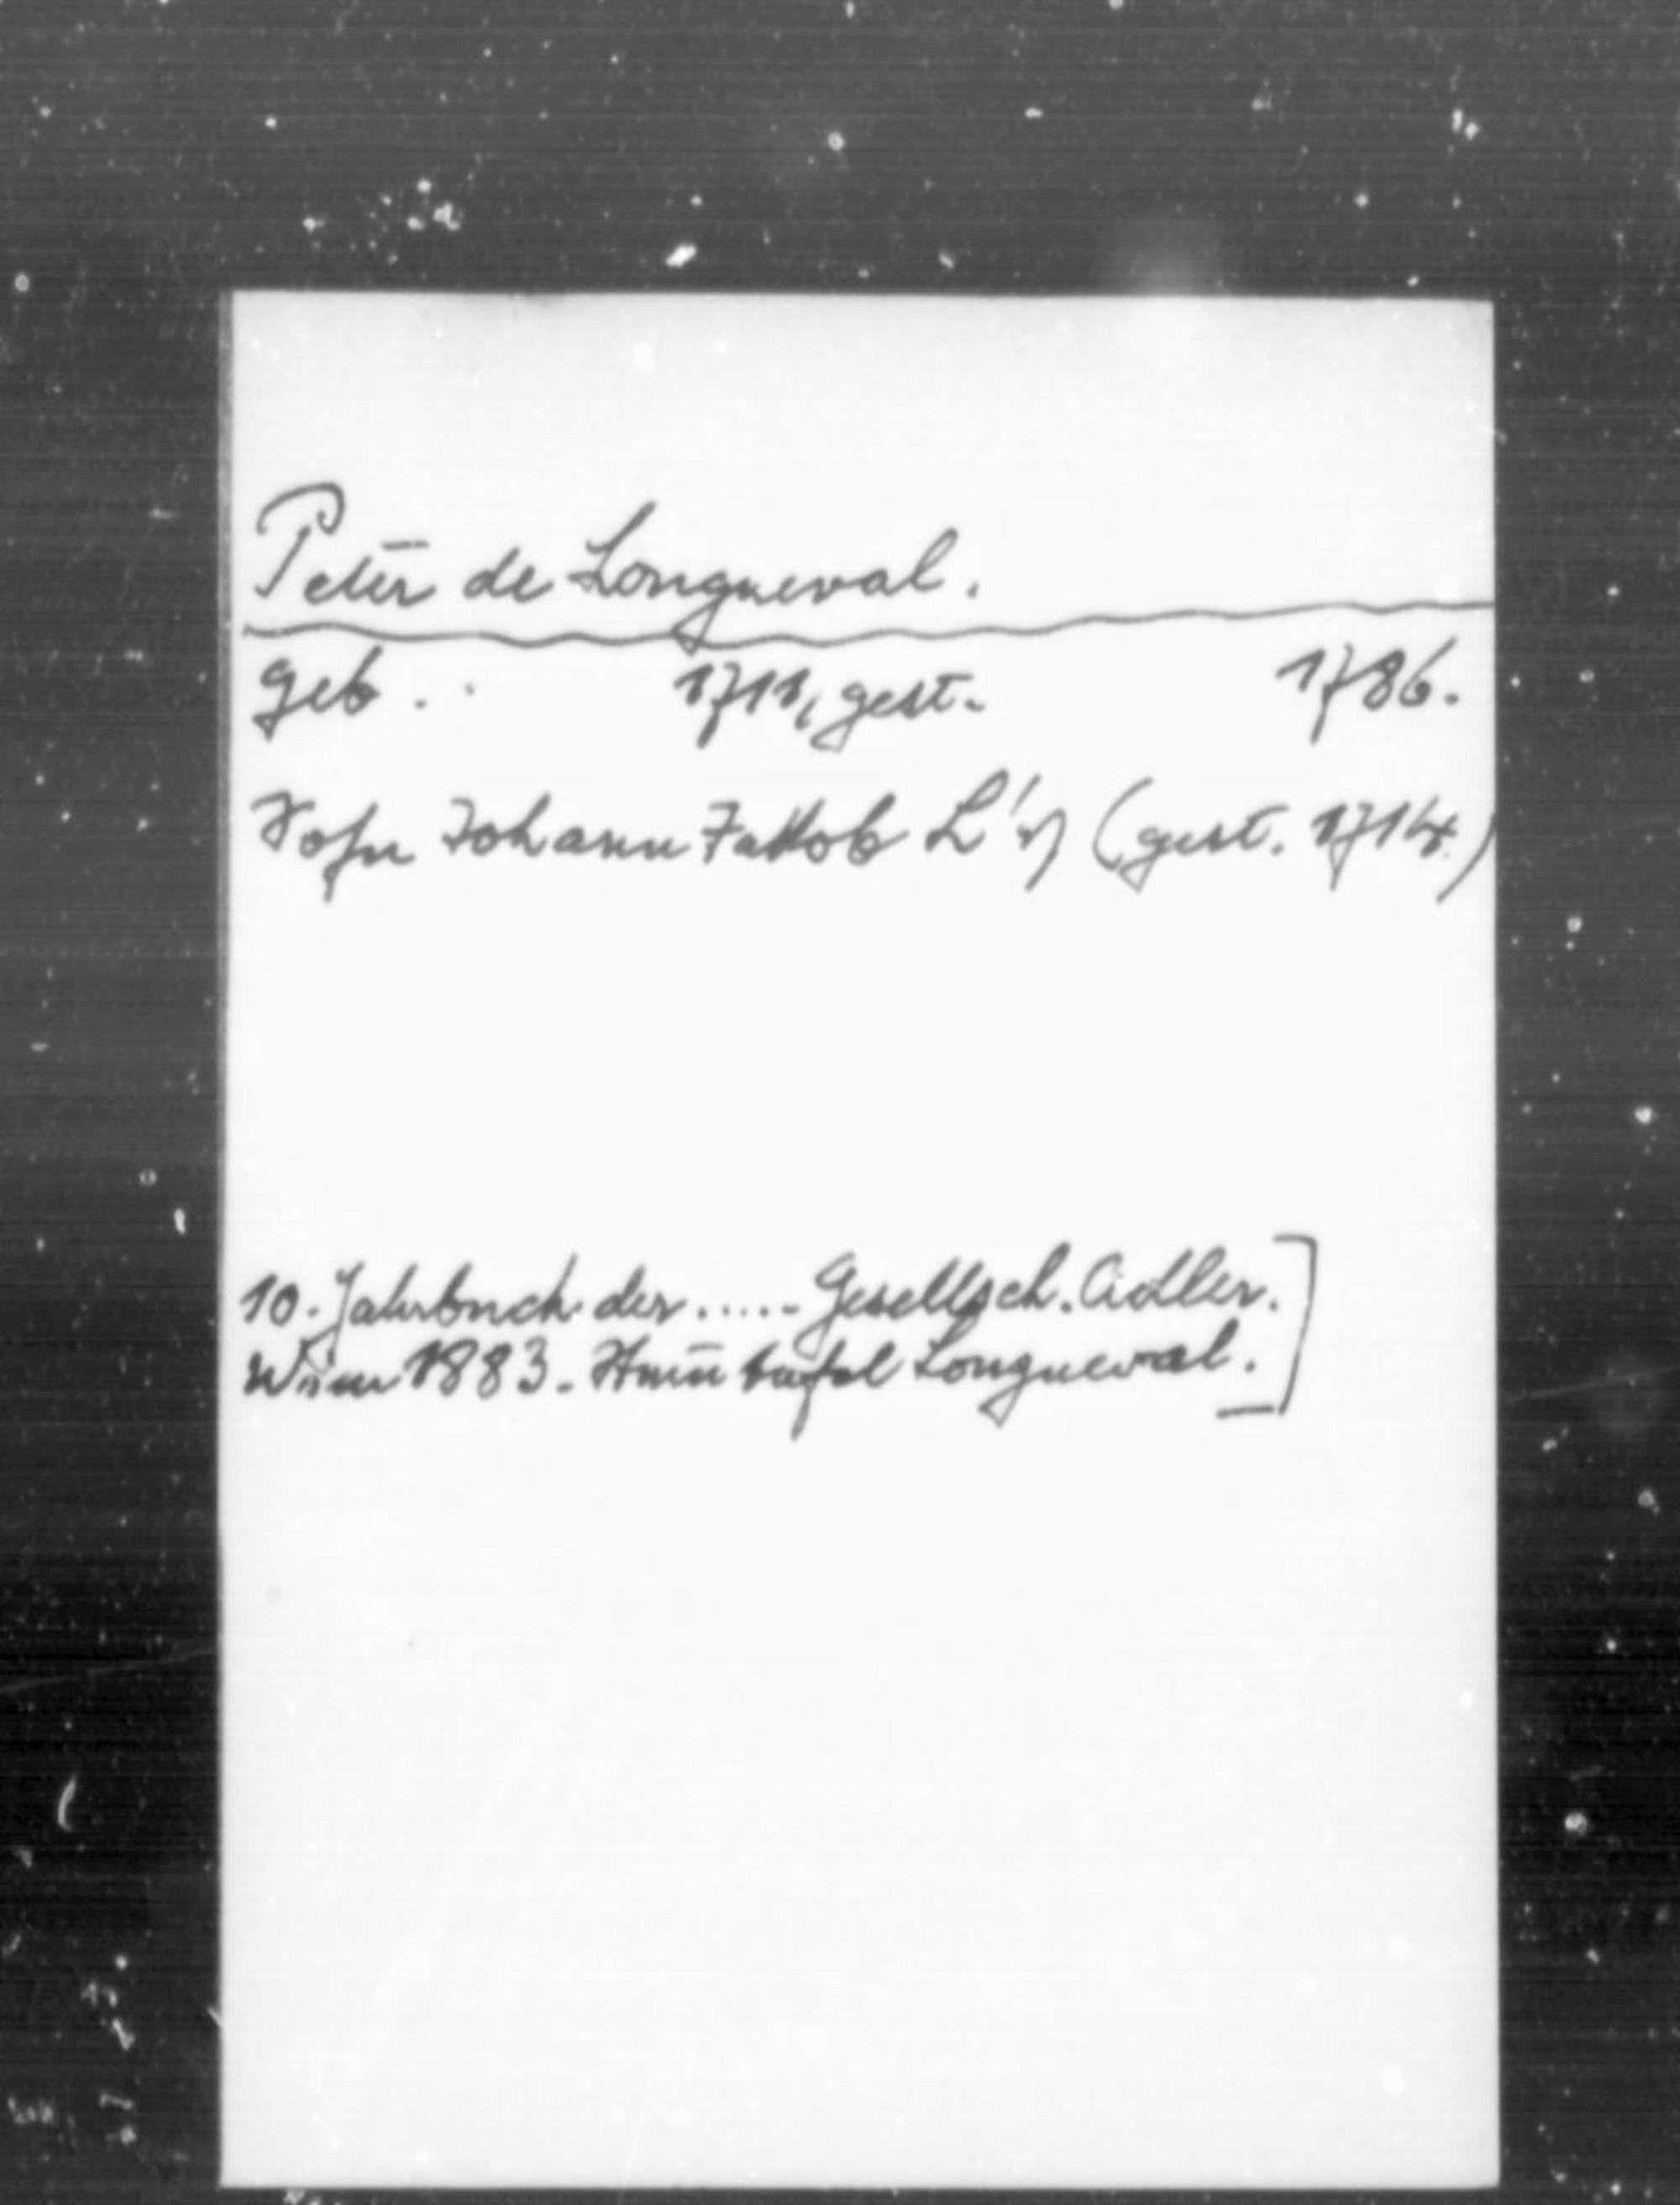 Peter de Longueval.
geb. . 1711, gest. 1786.
Sohn Johann Jakob L's (gest. 1714.)
10. Jahrbuch der ..... Gesellsch. Adler.
Wien 1883. Stam̄tafel Longueval.]